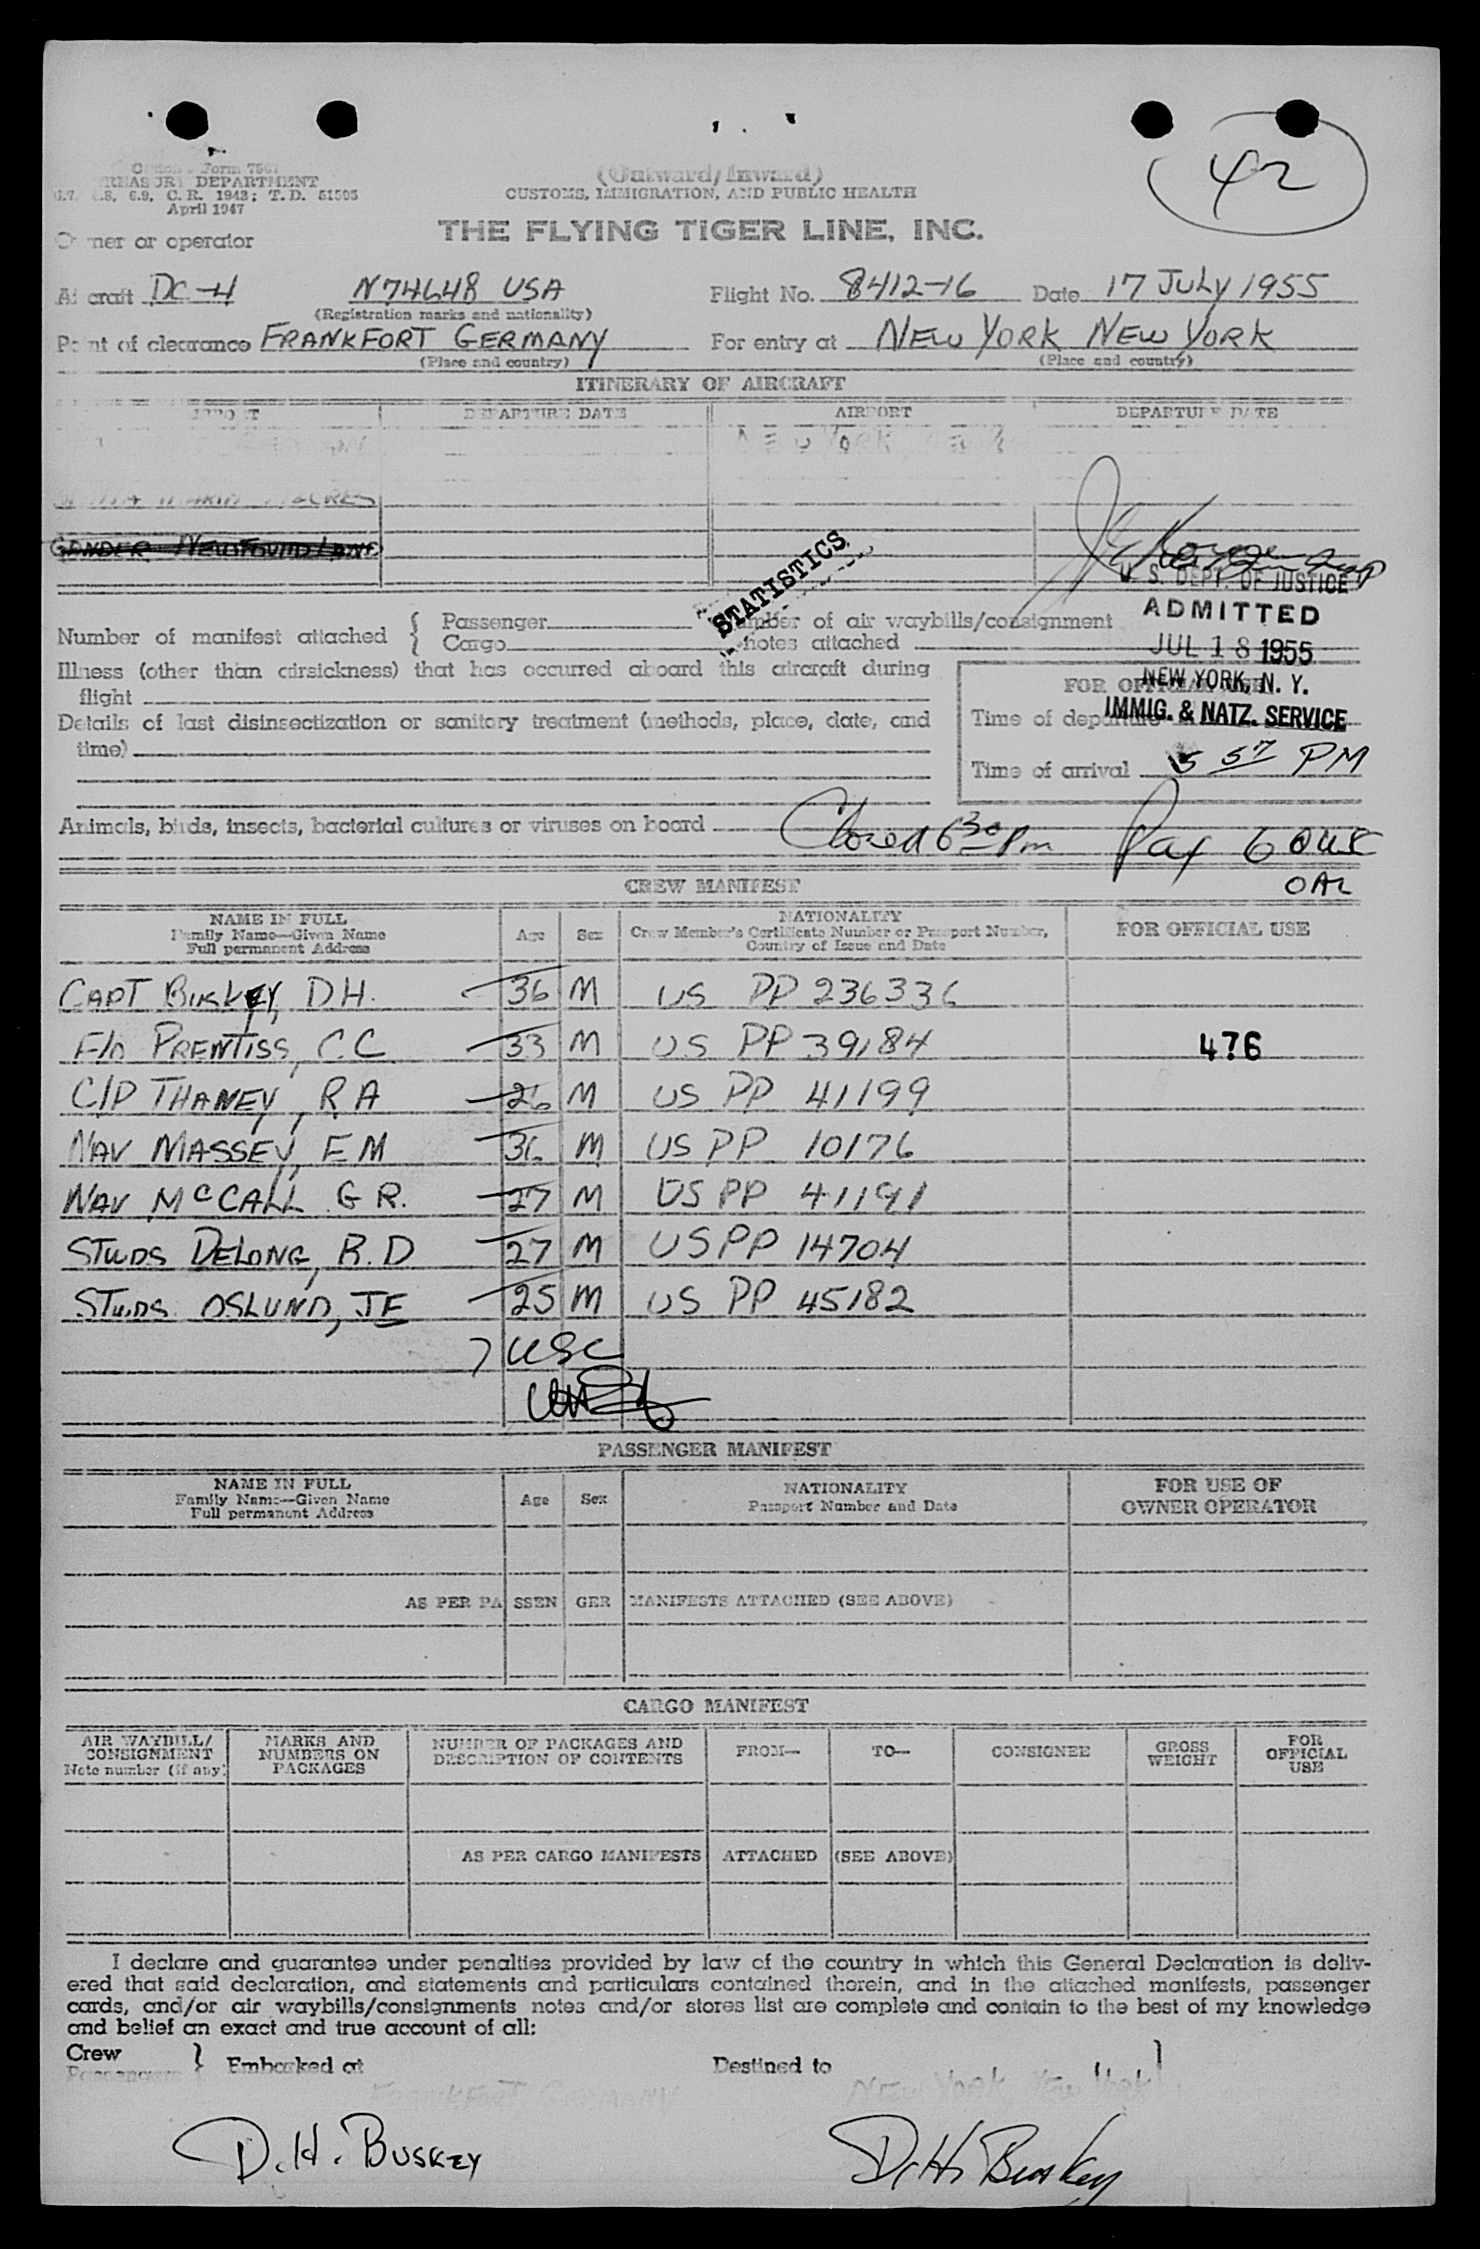 42
Form 7507
TREASURY DEPARTMENT
6.7, 6.8, 6.9, C.R. 1943; T.D. 51595
April 1947
(Outward/Inward)
CUSTOMS, IMMIGRATION, AND PUBLIC HEALTH
THE FLYING TIGER LINE, INC.
Owner or operator
Aircraft DC-4 N74648 USA Flight No. 8412-16 Date 17 JULY 1955
(Registration marks and nationality)
Point of clearance FRANKFORT GERMANY For entry at NEW YORK NEW YORK
(Place and country) (Place and country)
ITINERARY OF AIRCRAFT
AIRPORT DEPARTURE DATE AIRPORT DEPARTURE DATE
NEW YORK
GANDER, NEWFOUNDLAND
STATISTICS
U. S. DEPT. OF JUSTICE
ADMITTED
JUL 18 1955
NEW YORK, N. Y.
IMMIG. & NATZ. SERVICE
Number of manifest attached { Passenger Number of air waybills/consignment
Cargo notes attached
Illness (other than airsickness) that has occurred aboard this aircraft during
flight
FOR OFFICIAL USE
Details of last disinsectization or sanitory treatment (methods, place, date, and
time)
Time of departure
Time of arrival 5 57 PM
Animals, birds, insects, bacterial cultures or viruses on board
Closed 6 30 pm Pax 6
CREW MANIFEST
NAME IN FULL
Family Name—Given Name
Full permanent Address
Age Sex
NATIONALITY
Crew Member's Certificate Number or Passport Number,
Country of Issue and Date
FOR OFFICIAL USE
CAPT BUSKEY, D H. 36 M US PP 236336
F/O PRENTISS, C C 33 M US PP 39184 476
C/P THANEY, R A 26 M US PP 41199
NAV MASSEY, E M 36 M US PP 10176
NAV McCALL G R. 27 M US PP 41191
STWDS DELONG, R. D 27 M US PP 14704
STWDS OSLUND, JE 25 M US PP 45182
7 USC
PASSENGER MANIFEST
NAME IN FULL
Family Name—Given Name
Full permanent Address
Age Sex
NATIONALITY
Passport Number and Date
FOR USE OF
OWNER OPERATOR
AS PER PASSENGER MANIFESTS ATTACHED (SEE ABOVE)
CARGO MANIFEST
AIR WAYBILL/
CONSIGNMENT
Note number (if any)
MARKS AND
NUMBERS ON
PACKAGES
NUMBER OF PACKAGES AND
DESCRIPTION OF CONTENTS
FROM—
TO—
CONSIGNEE
GROSS
WEIGHT
FOR
OFFICIAL
USE
AS PER CARGO MANIFESTS ATTACHED (SEE ABOVE)
I declare and guarantee under penalties provided by law of the country in which this General Declaration is deliv-
ered that said declaration, and statements and particulars contained therein, and in the attached manifests, passenger
cards, and/or air waybills/consignments notes and/or stores list are complete and contain to the best of my knowledge
and belief an exact and true account of all:
Crew
Passengers } Embarked at Destined to
FRANKFORT GERMANY NEW YORK, NEW YORK
D. H. BUSKEY D. H. Buskey